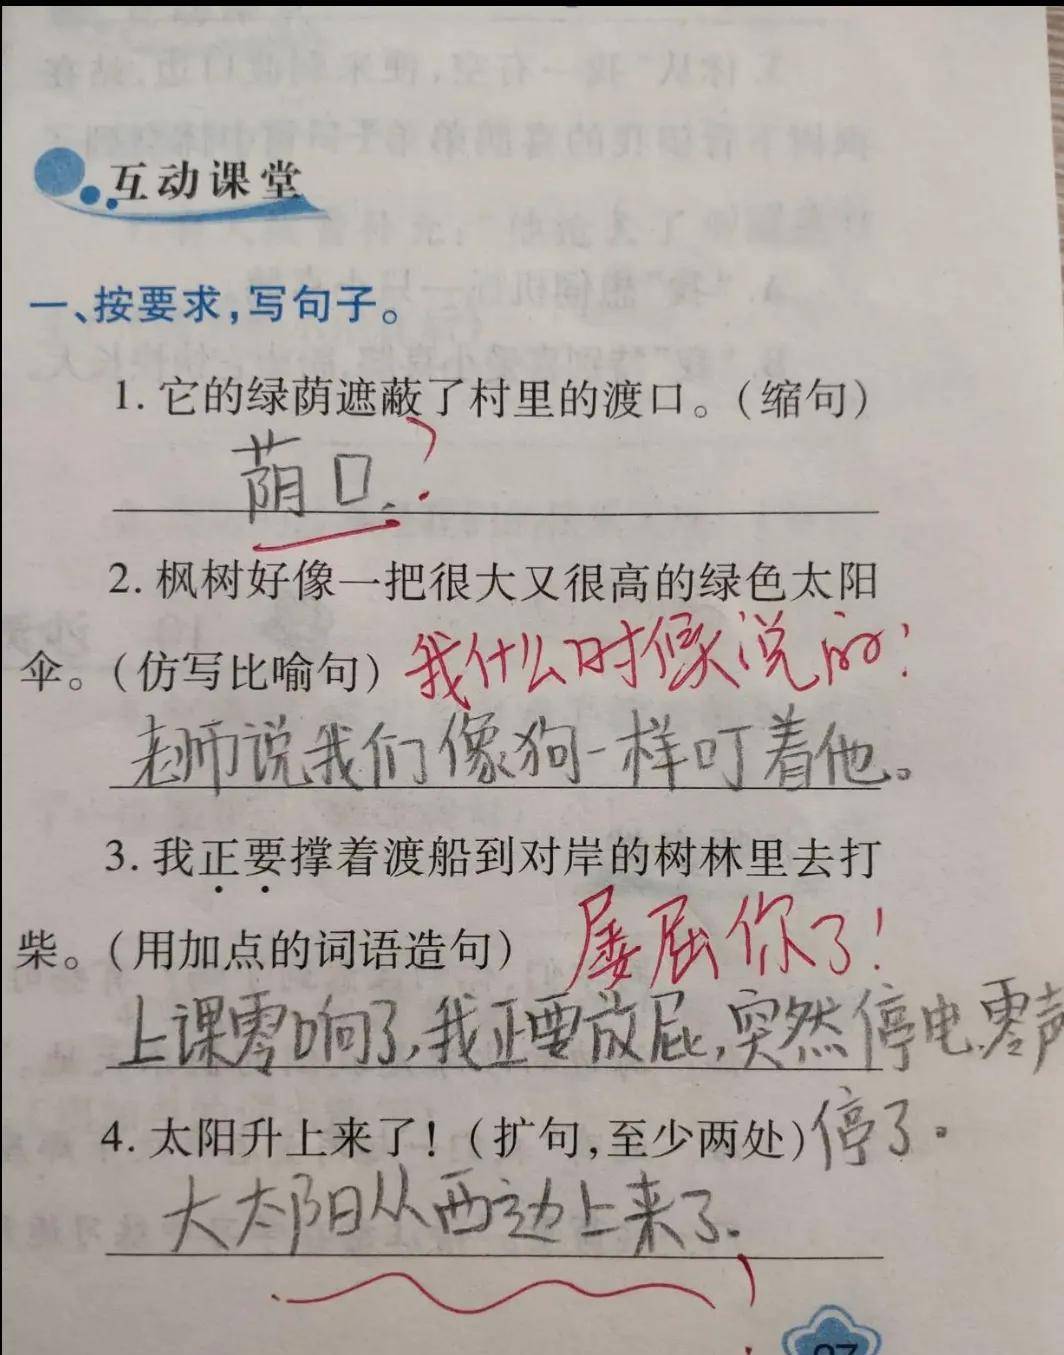 互动课堂
一、按要求,写句子。
1. 它的绿荫遮蔽了村里的渡口。(缩句)
荫口. ?
2. 枫树好像一把很大又很高的绿色太阳
伞。(仿写比喻句) 我什么时候说的?
老师说我们像狗一样叮着他。
3. 我正要撑着渡船到对岸的树林里去打
柴。(用加点的词语造句) 屡屈你了!
上课零响了,我正要放屁,突然停电,零声
4. 太阳升上来了!(扩句,至少两处) 停了。
大太阳从西边上来了.